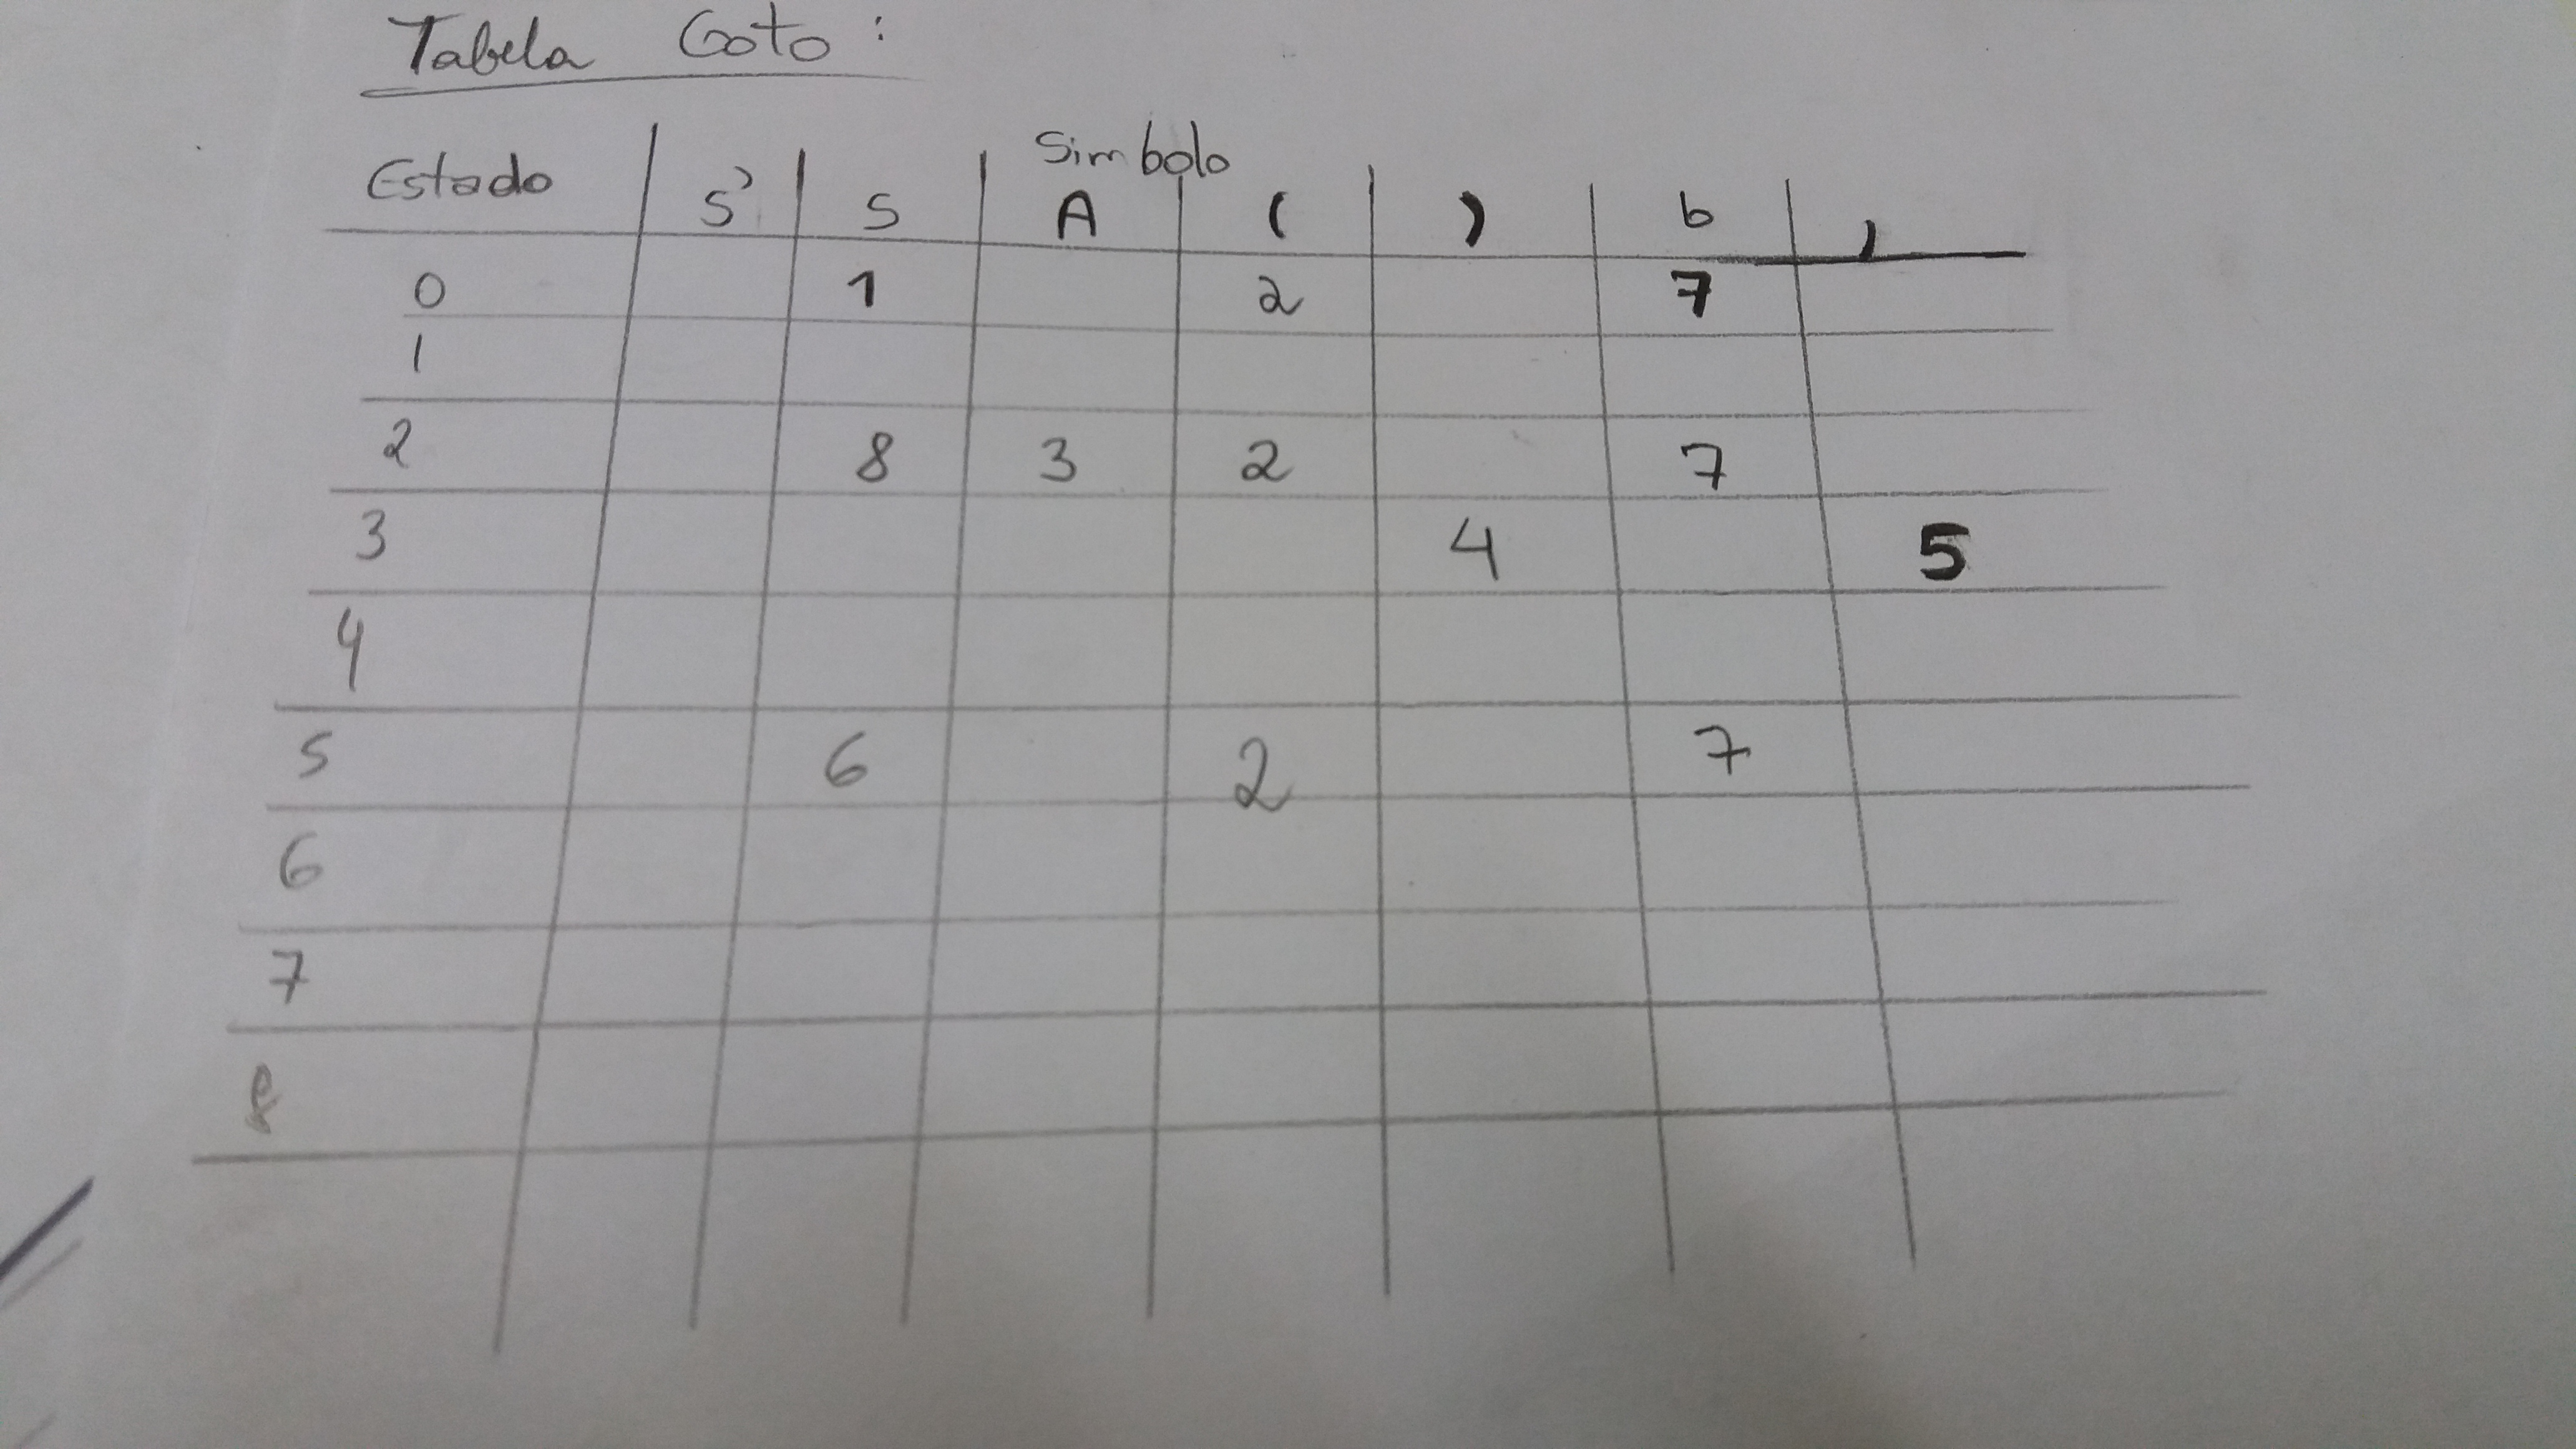 Tabela Goto:
Simbolo
Estado S' S A ( ) b ,
0 1 2 7
1
2 8 3 2 7
3 4 5
4
5 6 2 7
6
7
8